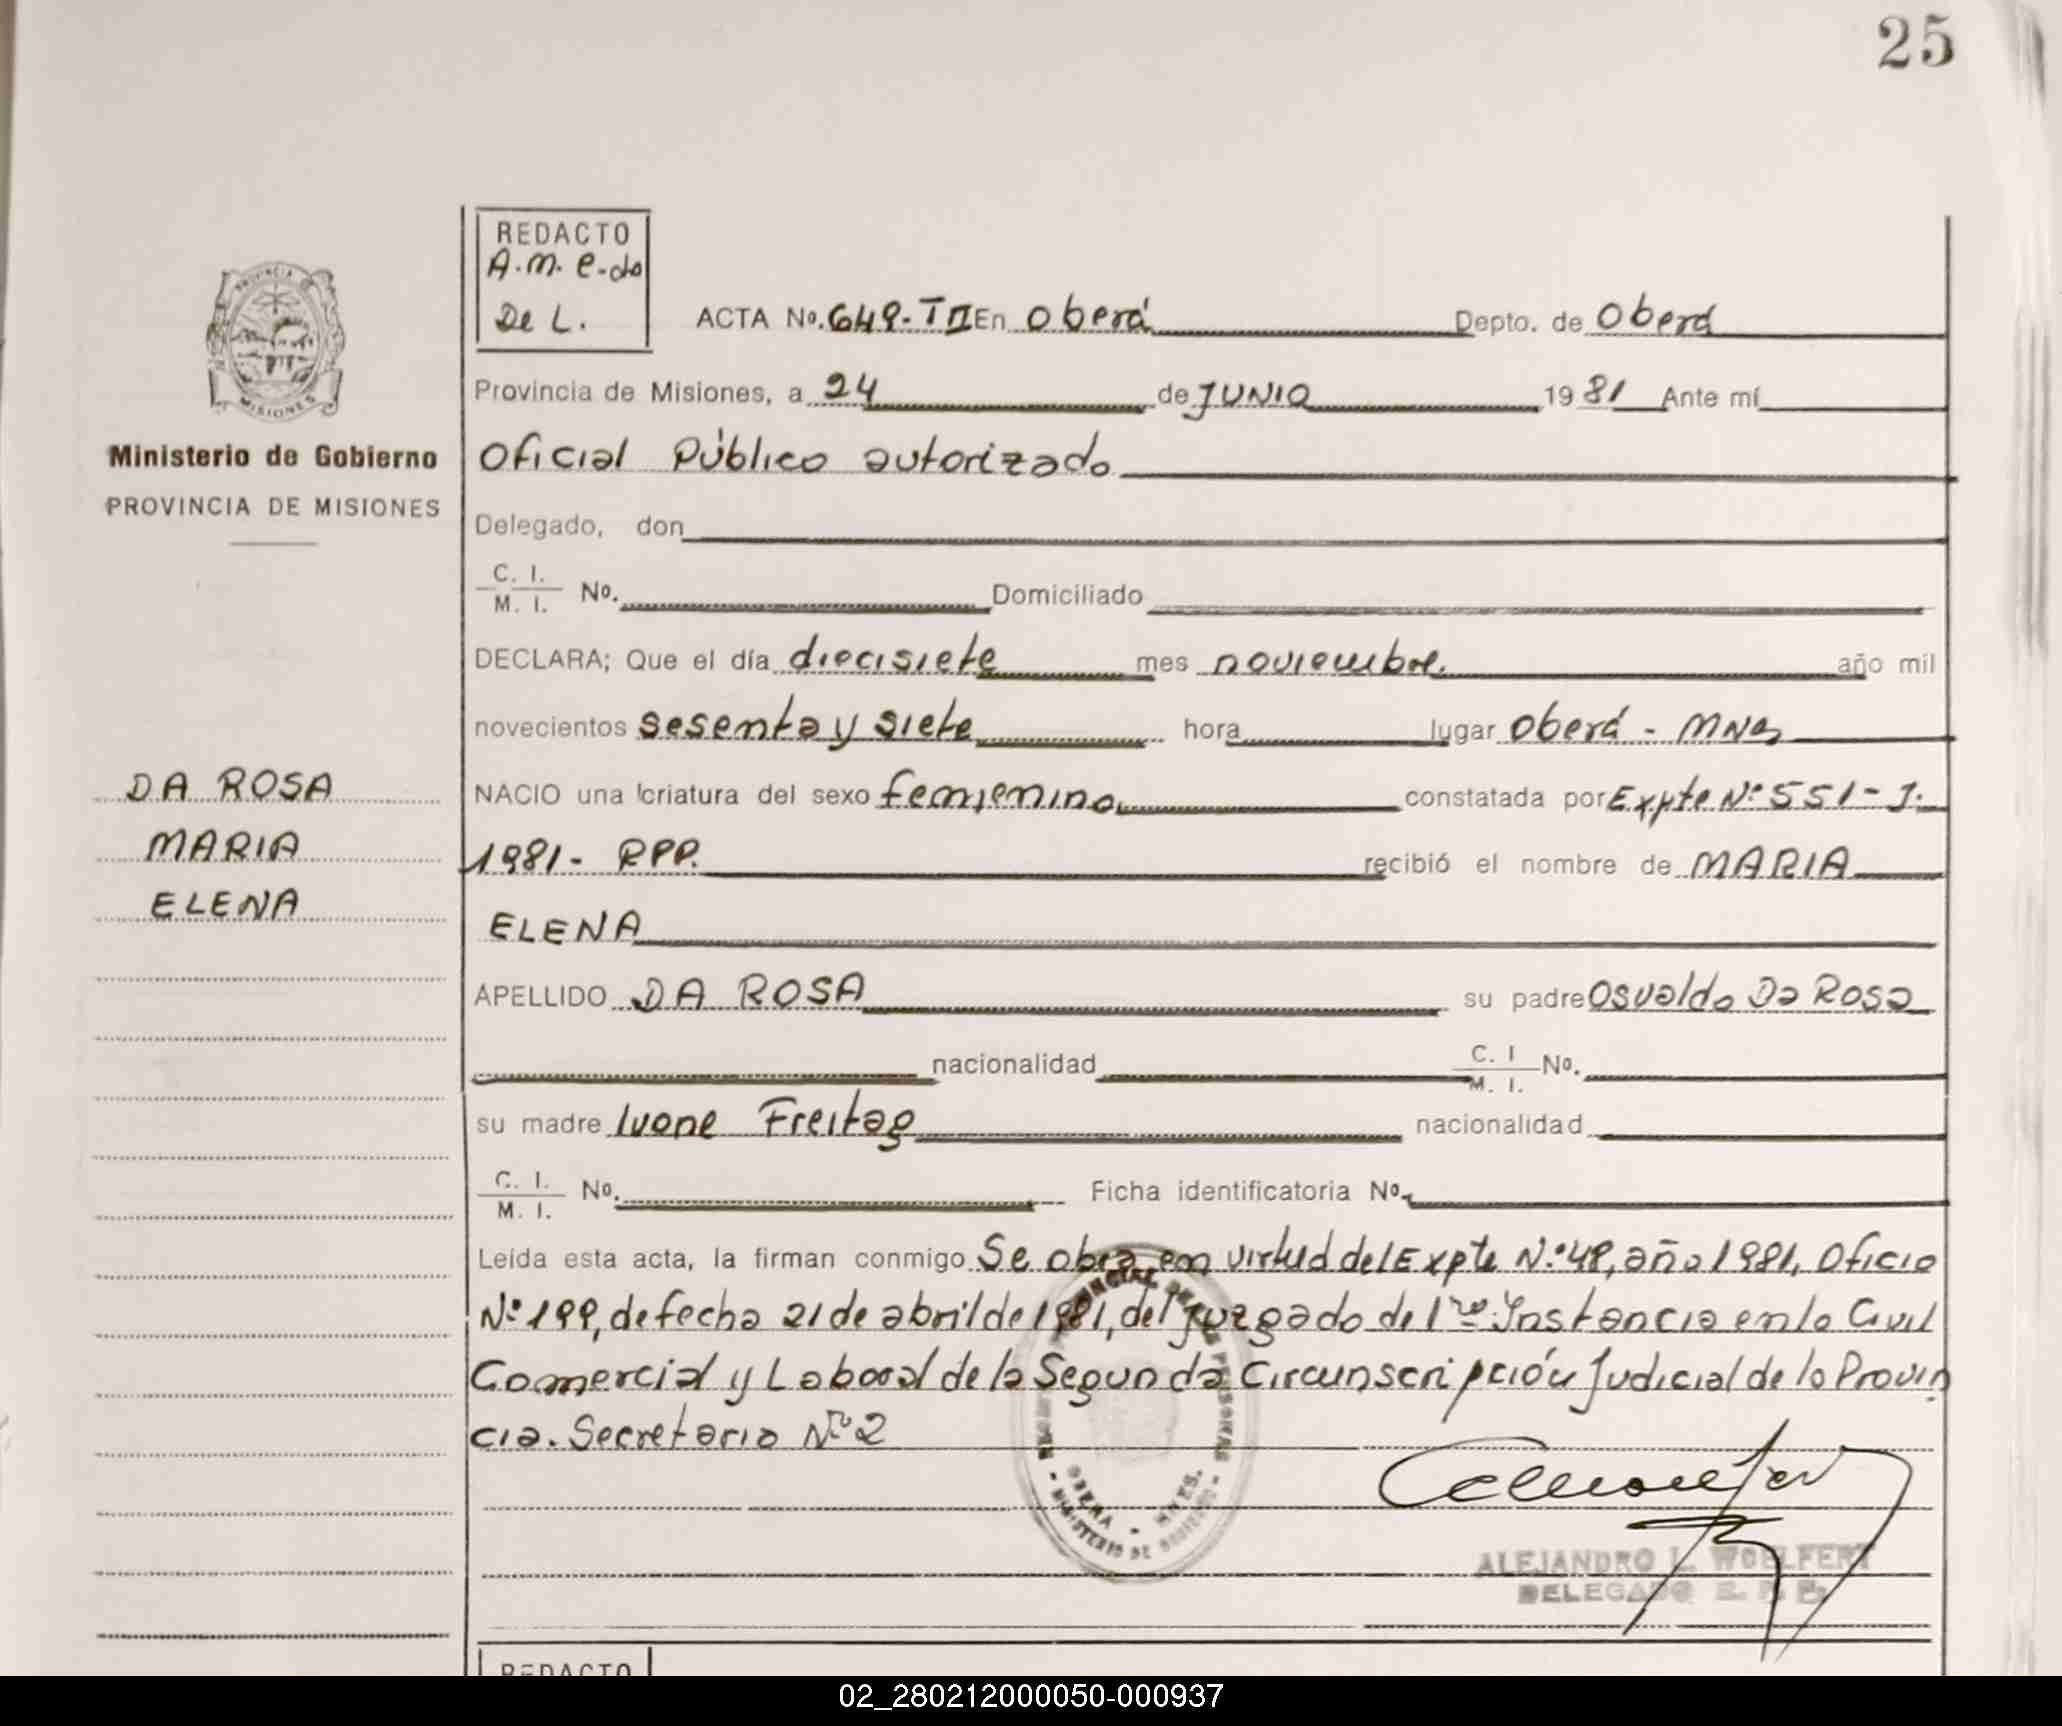 25
REDACTO
A.M. e-do
De L.
ACTA No. 649-T II En Oberá Depto. de Oberá
Provincia de Misiones, a 24 de JUNIO 1981 Ante mí
Ministerio de Gobierno
PROVINCIA DE MISIONES
Oficial Público autorizado
Delegado, don
C. I.
M. I. No. Domiciliado
DECLARA; Que el día diecisiete mes noviembre. año mil
novecientos sesenta y siete hora lugar Oberá - Mnes
DA ROSA
MARIA
ELENA
NACIO una criatura del sexo femenino constatada por Expte Nº 551-J.
1981- RPP. recibió el nombre de MARIA
ELENA
APELLIDO DA ROSA su padre Osvaldo Da Rosa
nacionalidad C. I
M. I. No.
su madre Ivone Freitag nacionalidad
C. I.
M. I. No. Ficha identificatoria No.
Leída esta acta, la firman conmigo Se obra en virtud del Expte Nº 49, año 1981, Oficio
Nº 199, de fecha 21 de abril de 1981, del Juzgado de 1ra Instancia en lo Civil
Comercial y Laboral de la Segunda Circunscripción Judicial de la Provin
cia. Secretaria Nº 2
OBERA - MNES.
MINISTERIO DE GOBIERNO
ALEJANDRO L. WOELFERT
DELEGADO R. P. P.
REDACTO
02_280212000050-000937